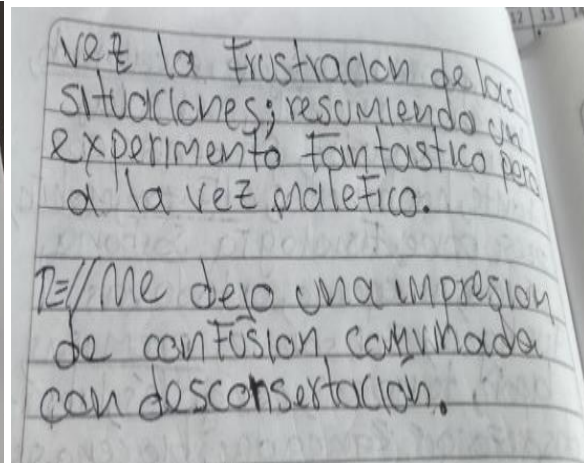 vez la frustracion de las
situaciones; resumiendo un
experimento fantastico pero
a la vez malefico.
R=// Me dejo una impresion
de confusion comvinada
con desconsertacion.
12 13